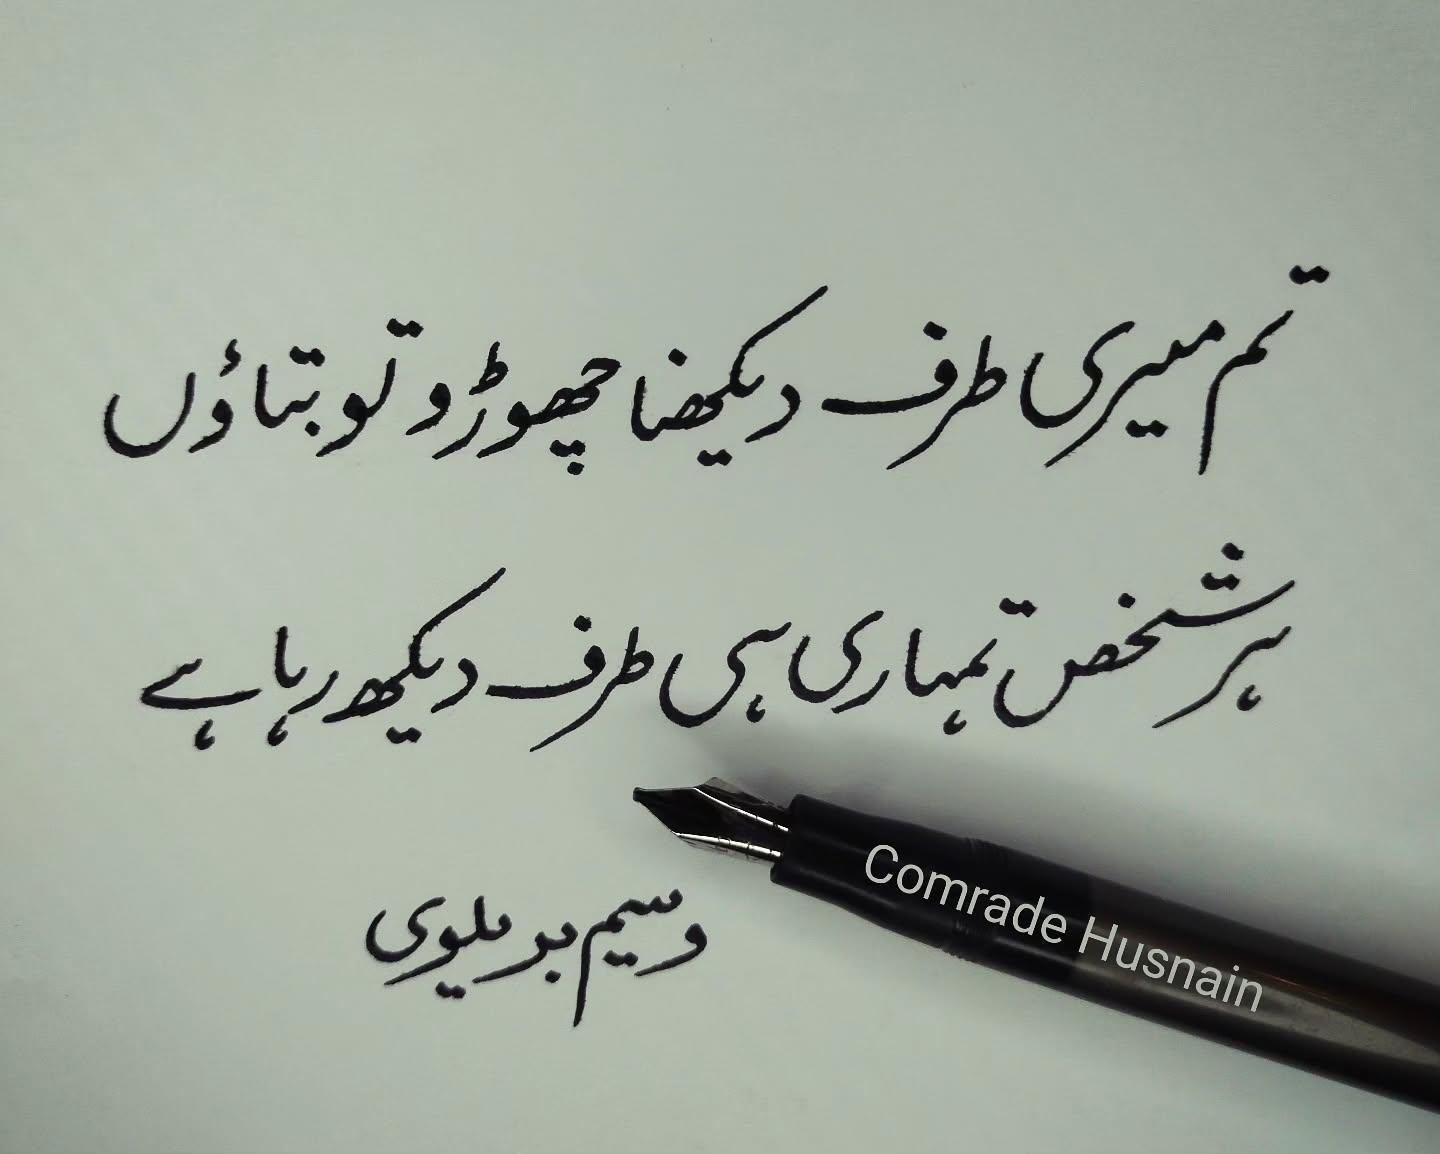 تم میری طرف دیکھنا چھوڑو تو بتاؤں
ہر شخص تمہاری ہی طرف دیکھ رہا ہے
وسیم بریلوی
Comrade Husnain